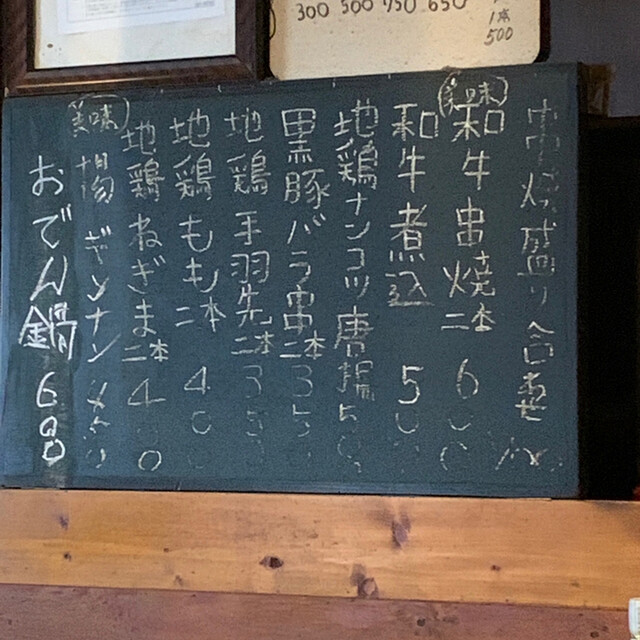 300 500 750 650
1本
500
串焼盛り合わせ
美味
和牛串焼二本 600
和牛煮込 500
地鶏ナンコツ唐揚 500
黒豚バラ串二本 350
地鶏手羽先二本 350
地鶏もも二本 400
地鶏ねぎま二本 400
美味
揚ギンナン
おでん鍋 600